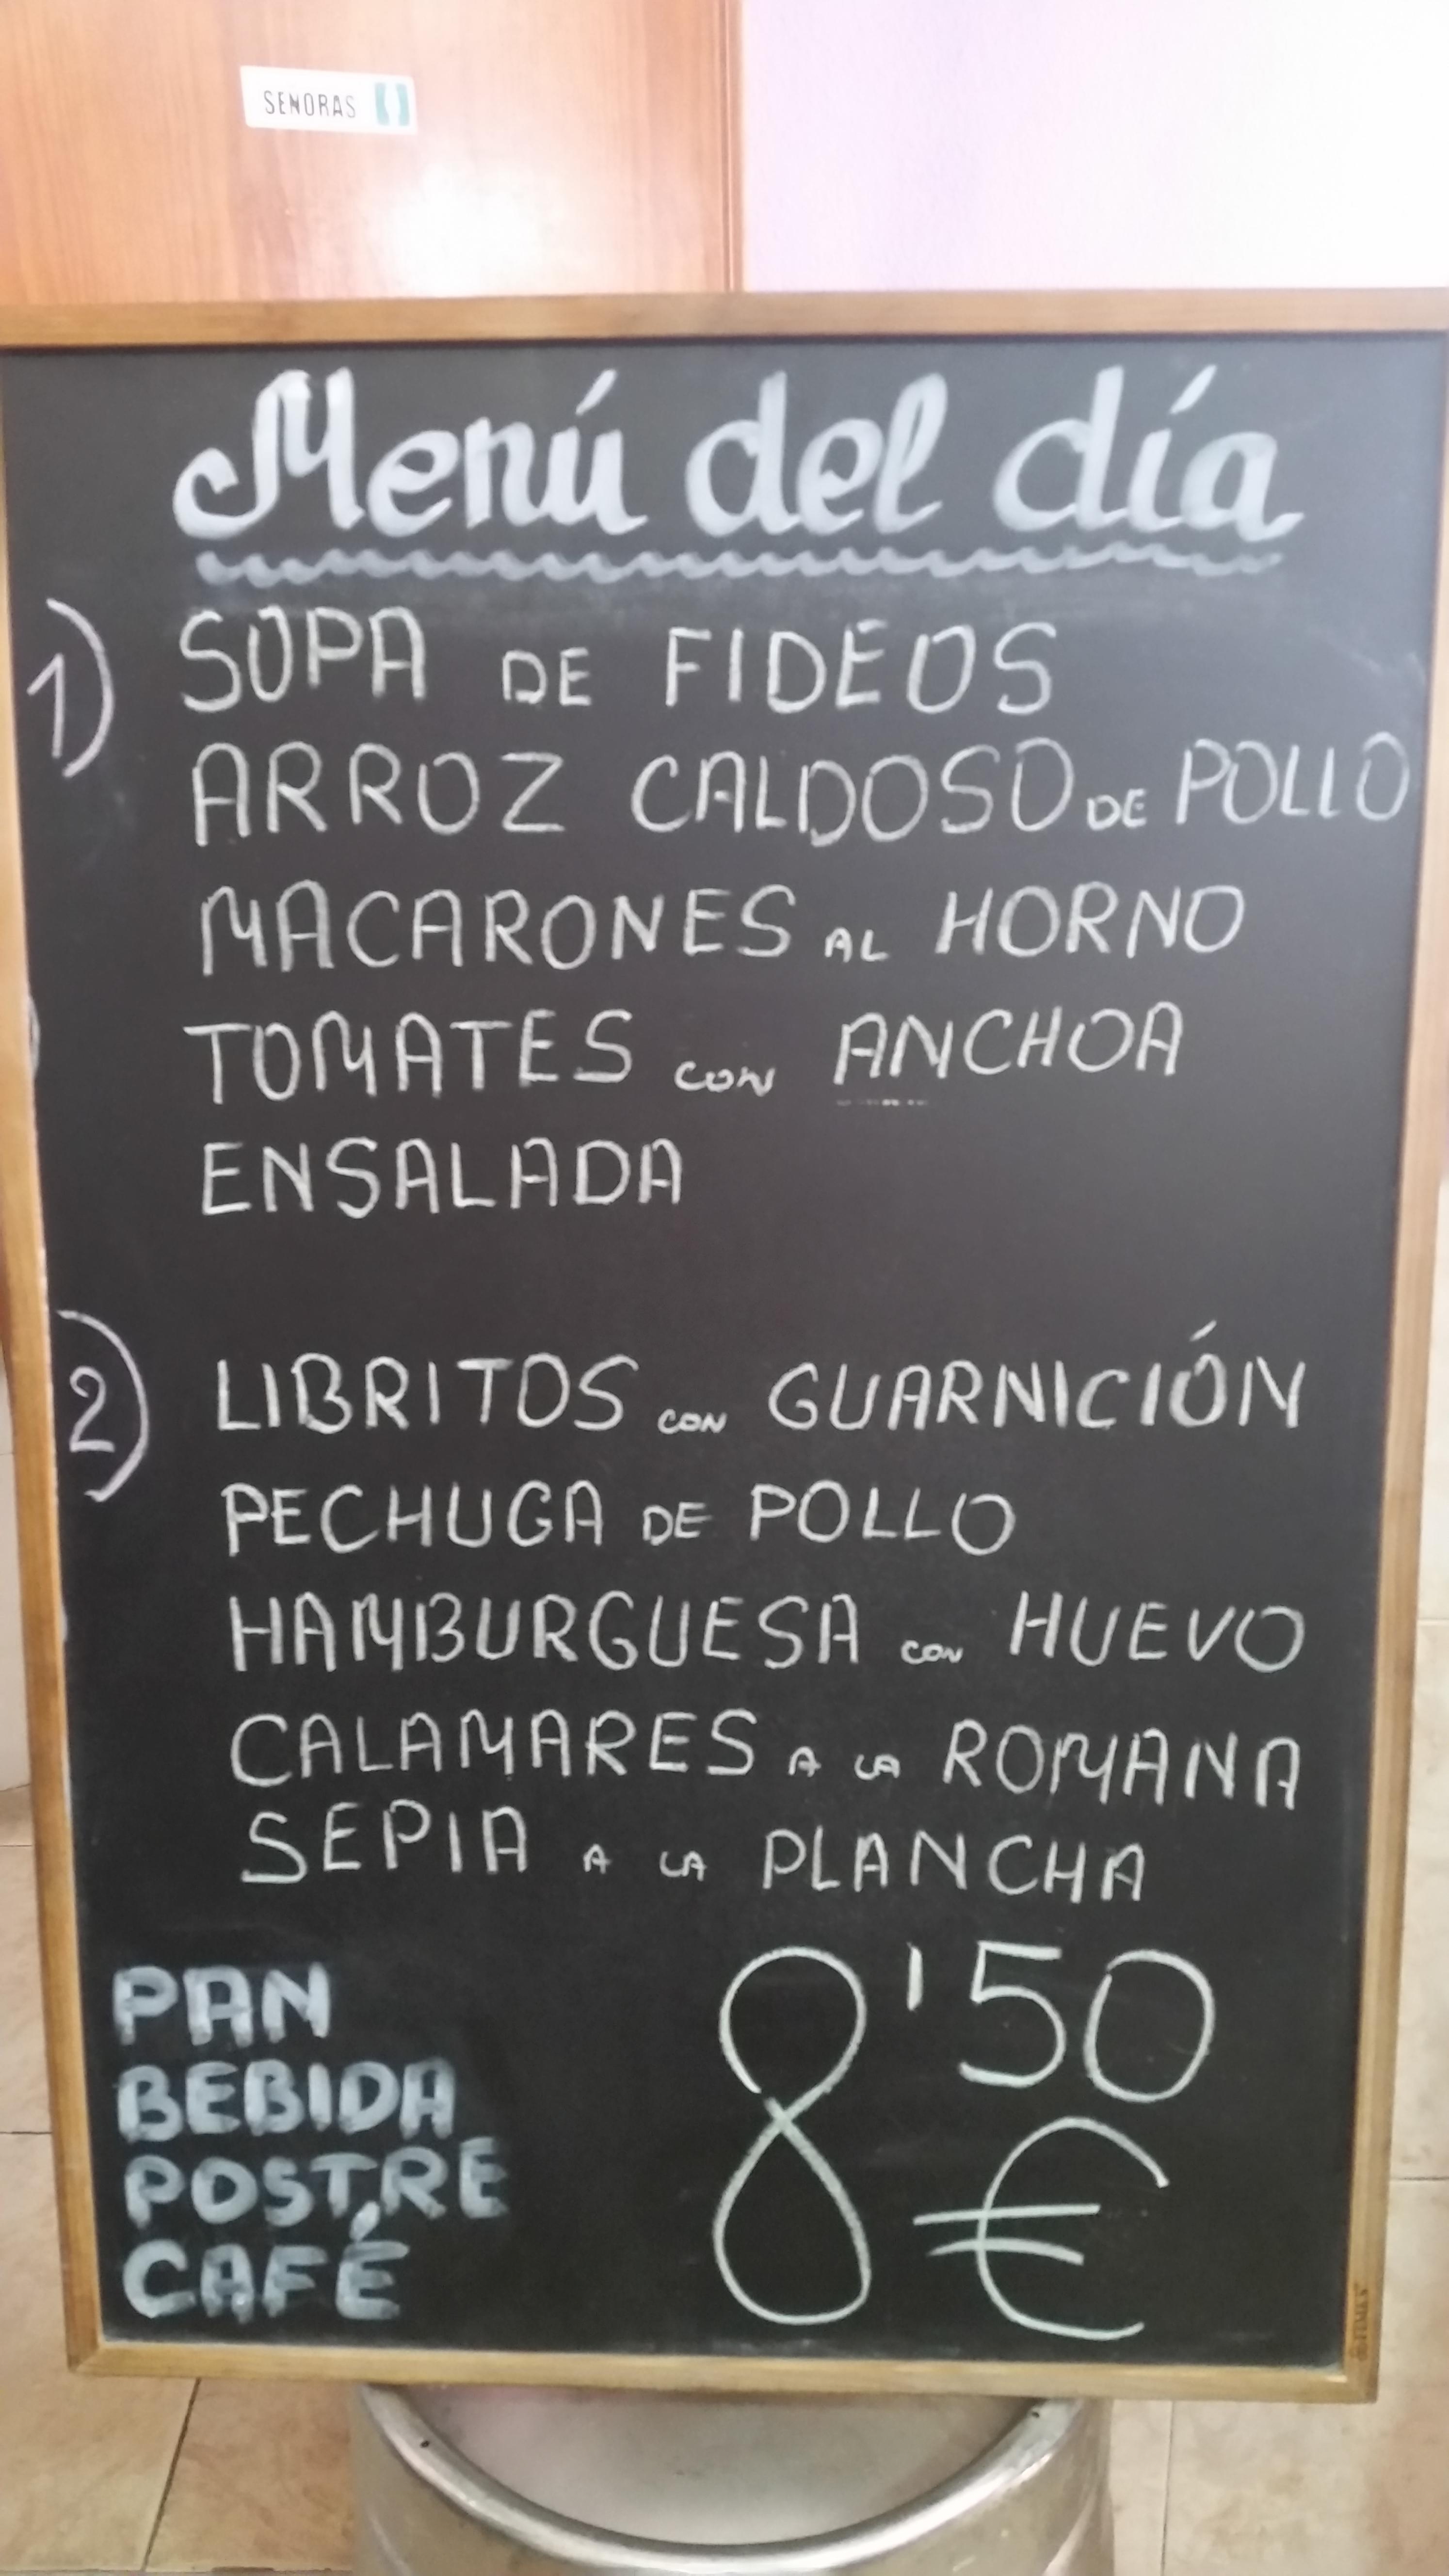 SEÑORAS
Menú del día
1) SOPA DE FIDEOS
ARROZ CALDOSO DE POLLO
MACARONES AL HORNO
TOMATES CON ANCHOA
ENSALADA
2) LIBRITOS CON GUARNICIÓN
PECHUGA DE POLLO
HAMBURGUESA CON HUEVO
CALAMARES A LA ROMANA
SEPIA A LA PLANCHA
PAN
BEBIDA
POSTRE
CAFÉ
8'50
€